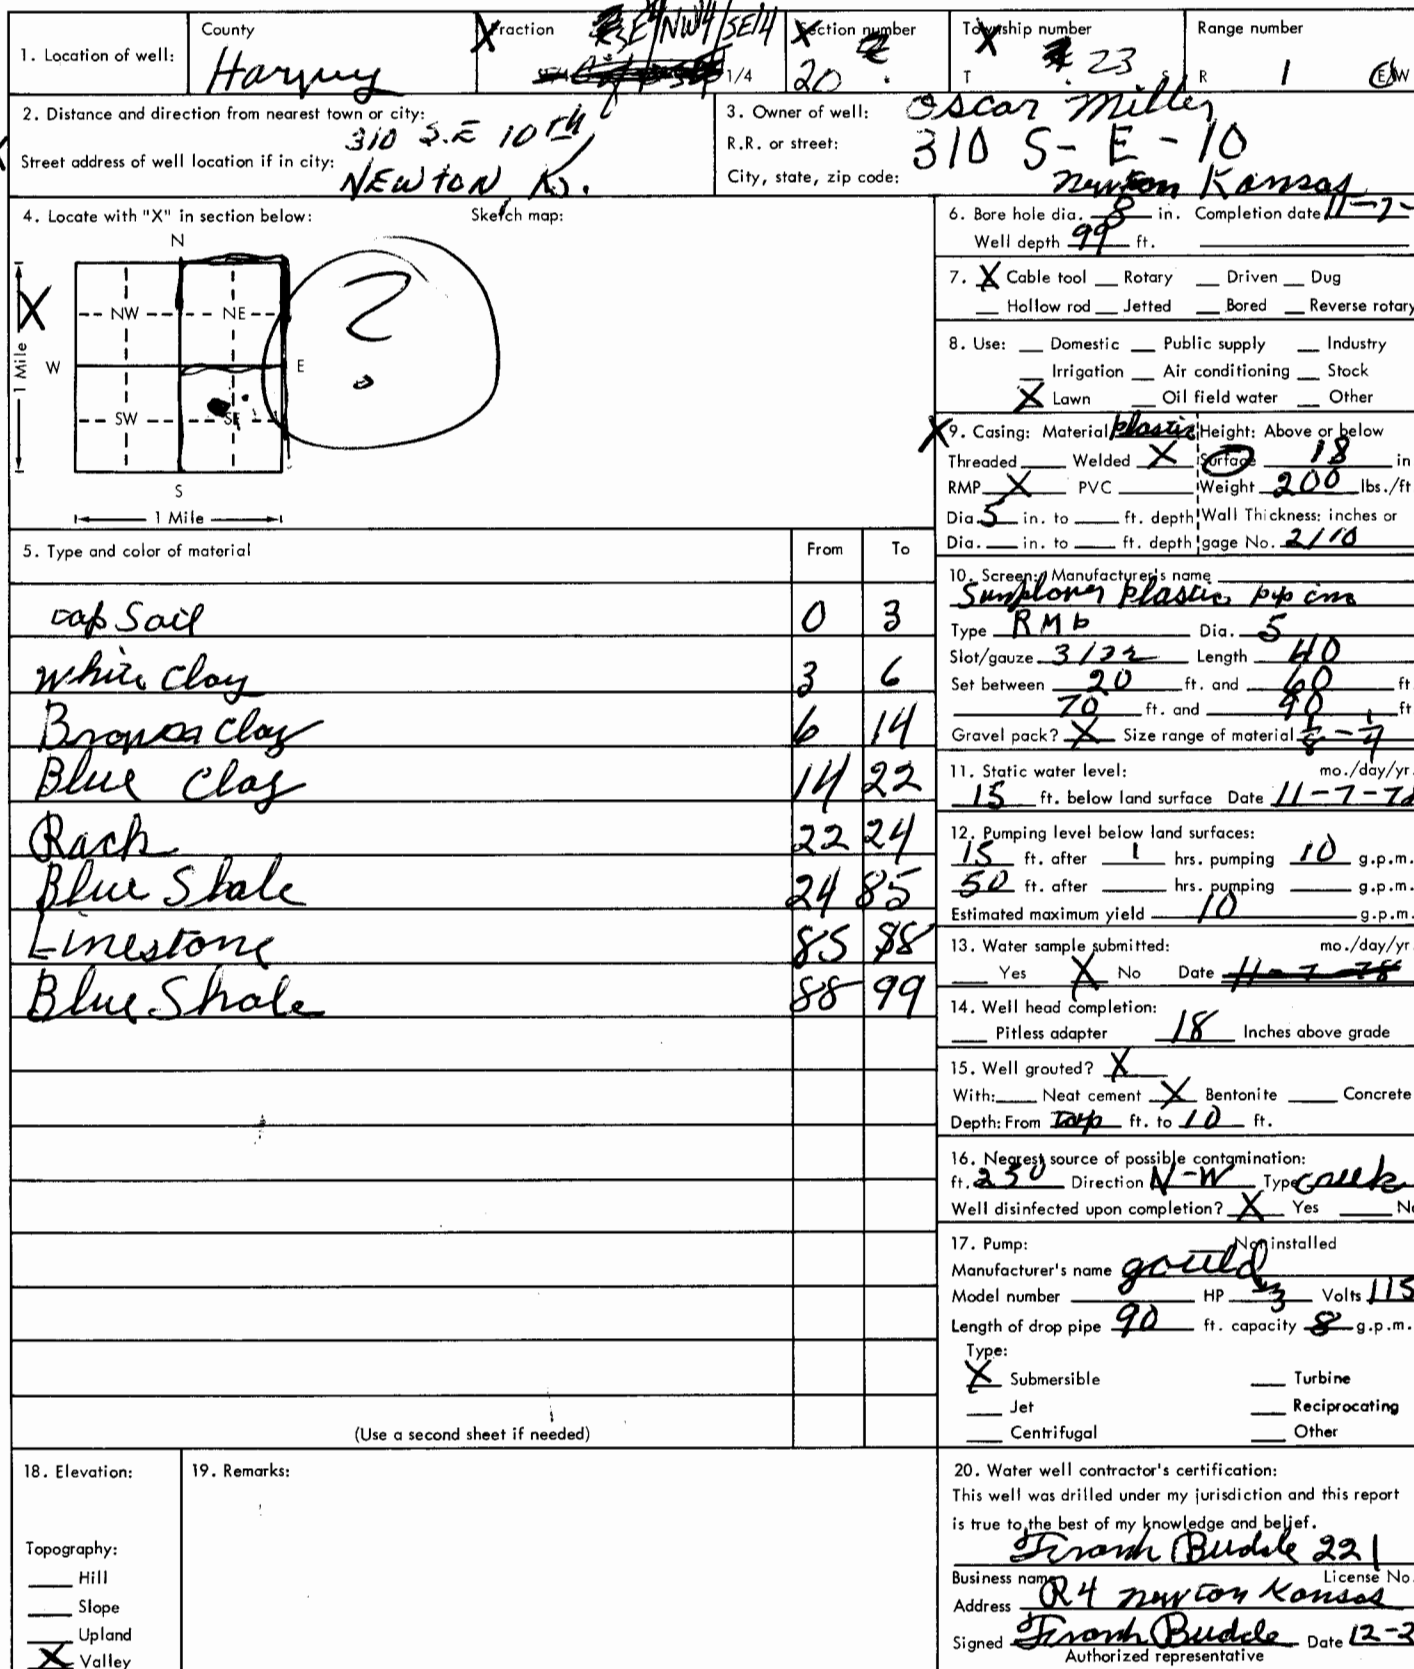 1. Location of well:
County
Harvey
Fraction
SE/NW4/SE/4
1/4
Section number
20
Township number
T 23 S
Range number
R 1 E/W
2. Distance and direction from nearest town or city:
310 S.E 10th
Street address of well location if in city:
NEWTON K.
3. Owner of well: Oscar Miller
R.R. or street: 310 S-E-10
City, state, zip code: Newton Kansas
4. Locate with "X" in section below:
Sketch map:
N
NW NE
W E
SW SE
S
1 Mile
1 Mile
?
5. Type and color of material From To
Top Soil 0 3
White Clay 3 6
Brown Clay 6 14
Blue Clay 14 22
Rack 22 24
Blue Shale 24 85
Linestone 85 88
Blue Shale 88 99
(Use a second sheet if needed)
6. Bore hole dia. 8 in. Completion date 11-7-
Well depth 99 ft.
7. X Cable tool Rotary Driven Dug
Hollow rod Jetted Bored Reverse rotary
8. Use: Domestic Public supply Industry
Irrigation Air conditioning Stock
X Lawn Oil field water Other
9. Casing: Material plastic Height: Above or below
Threaded Welded X Surface 18 in
RMP X PVC Weight 200 lbs./ft
Dia. 5 in. to ft. depth Wall Thickness: inches or
Dia. in. to ft. depth gage No. 2/10
10. Screen: Manufacturer's name
Sunflower plastic pip
Type RMP Dia. 5
Slot/gauze 3/32 Length 40
Set between 20 ft. and 60 ft.
70 ft. and 90 ft
Gravel pack? X Size range of material 1/8 - 1/4
11. Static water level: mo./day/yr.
15 ft. below land surface Date 11-7-78
12. Pumping level below land surfaces:
15 ft. after 1 hrs. pumping 10 g.p.m.
50 ft. after hrs. pumping g.p.m.
Estimated maximum yield 10 g.p.m.
13. Water sample submitted: mo./day/yr.
Yes X No Date 11-7-78
14. Well head completion:
Pitless adapter 18 Inches above grade
15. Well grouted? X
With: Neat cement X Bentonite Concrete
Depth: From Top ft. to 10 ft.
16. Nearest source of possible contamination:
ft. 250 Direction N-W Type creek
Well disinfected upon completion? X Yes No
17. Pump: Not installed
Manufacturer's name gould
Model number HP Volts 115
Length of drop pipe 90 ft. capacity 8 g.p.m.
Type:
X Submersible Turbine
Jet Reciprocating
Centrifugal Other
18. Elevation:
Topography:
Hill
Slope
Upland
X Valley
19. Remarks:
20. Water well contractor's certification:
This well was drilled under my jurisdiction and this report
is true to the best of my knowledge and belief.
Frank Budde 221
Business name License No.
Address R4 Newton Kansas
Signed Frank Budde Date 12-2
Authorized representative